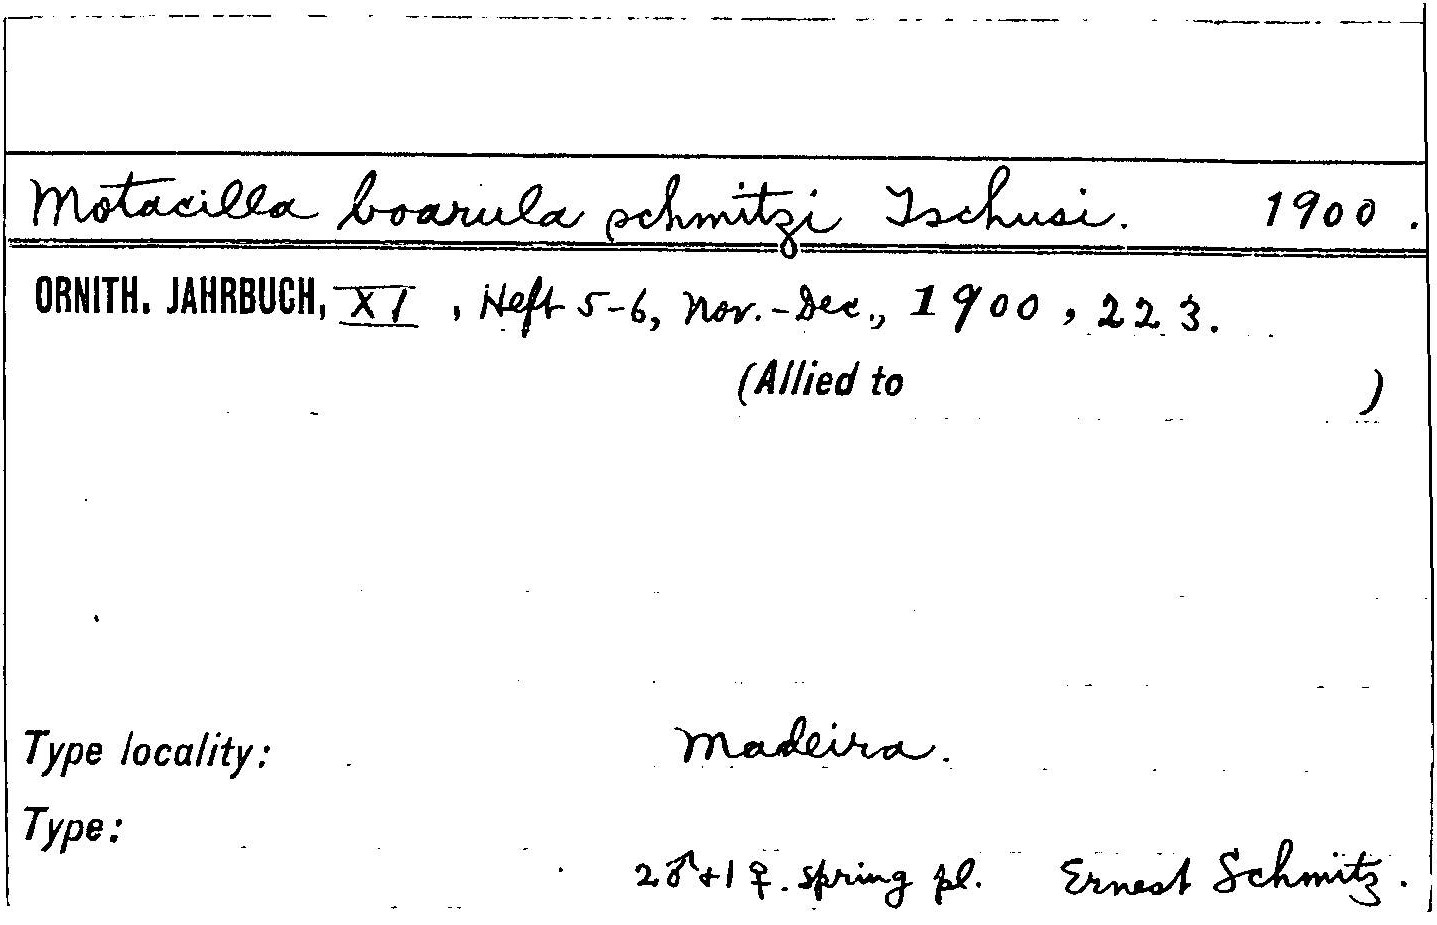 Motacilla boarula schmitzi Tschusi. 1900.
ORNITH. JAHRBUCH, XI, Heft 5-6, Nov.-Dec., 1900, 223.
(Allied to )
Type locality: Madeira.
Type:
2♂+1♀. spring pl. Ernest Schmitz.